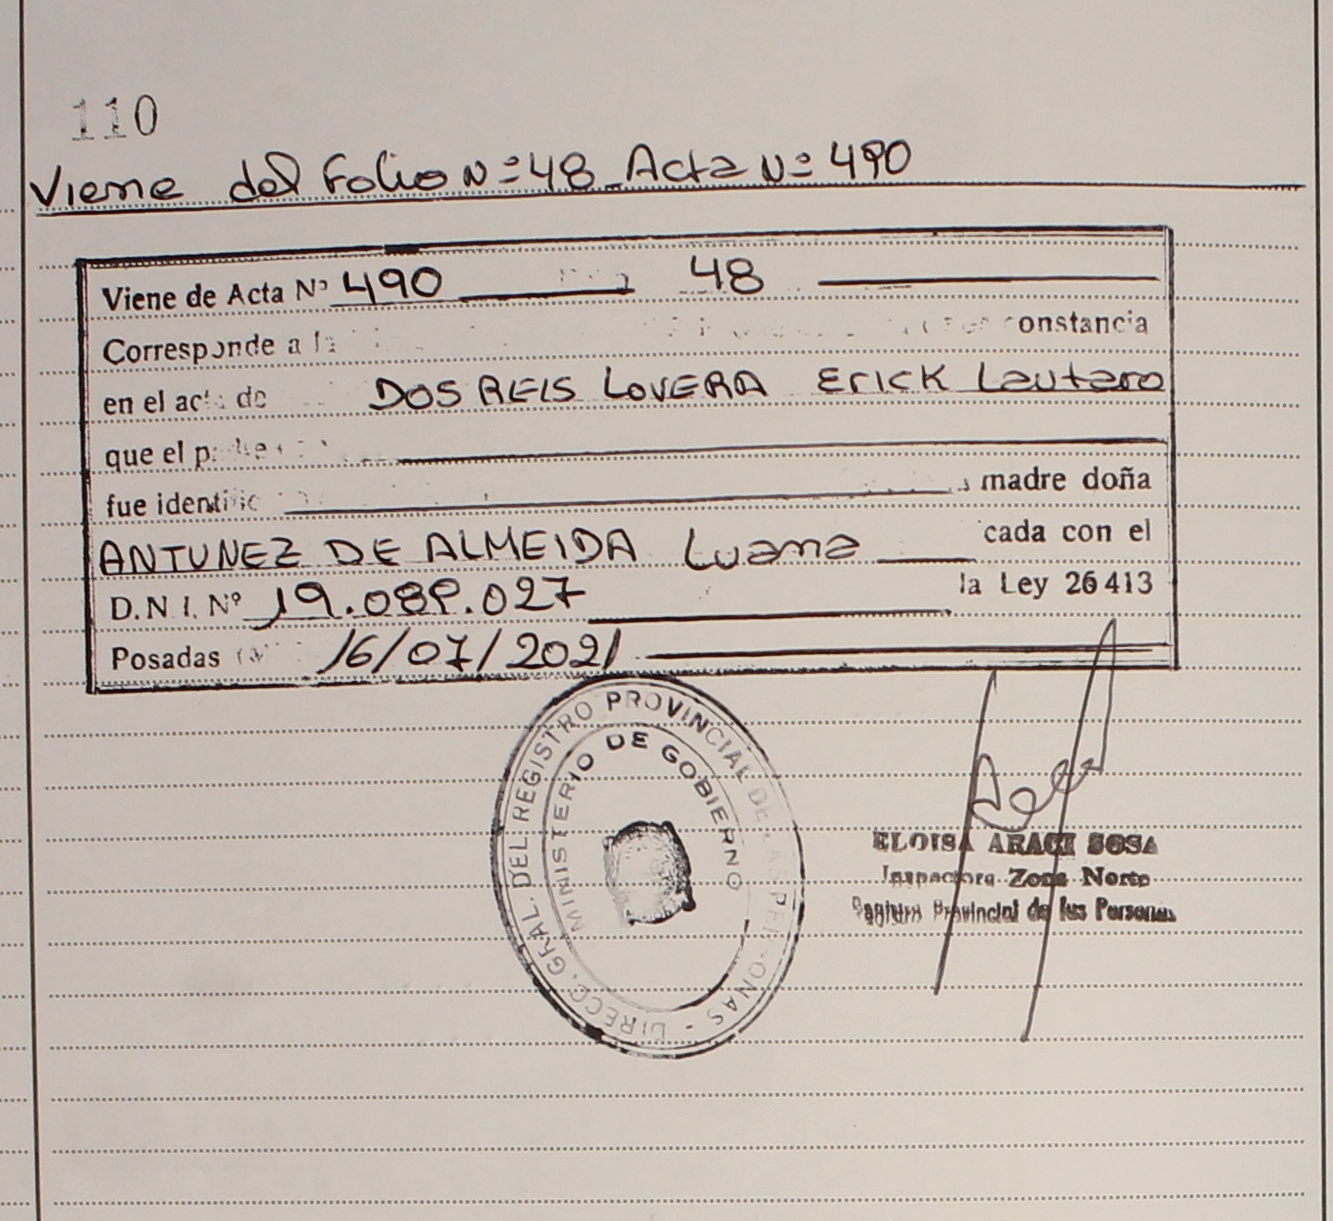 110
Viene del Folio Nº 48 Acta Nº 490
Viene de Acta Nº 490 48
Corresponde a la constancia
en el acta de DOS REIS LOVERA Erick Lautaro
que el
fue madre doña
ANTUNEZ DE ALMEIDA Luana cada con el
D.N.I. Nº 19.089.027 la Ley 26413
Posadas 16/07/2021
DIRECC. GRAL. DEL REGISTRO PROVINCIAL DE LAS PERSONAS -
MINISTERIO DE GOBIERNO
ELOISA ARACI SOSA
Inspectora Zona Norte
Registro Provincial de las Personas